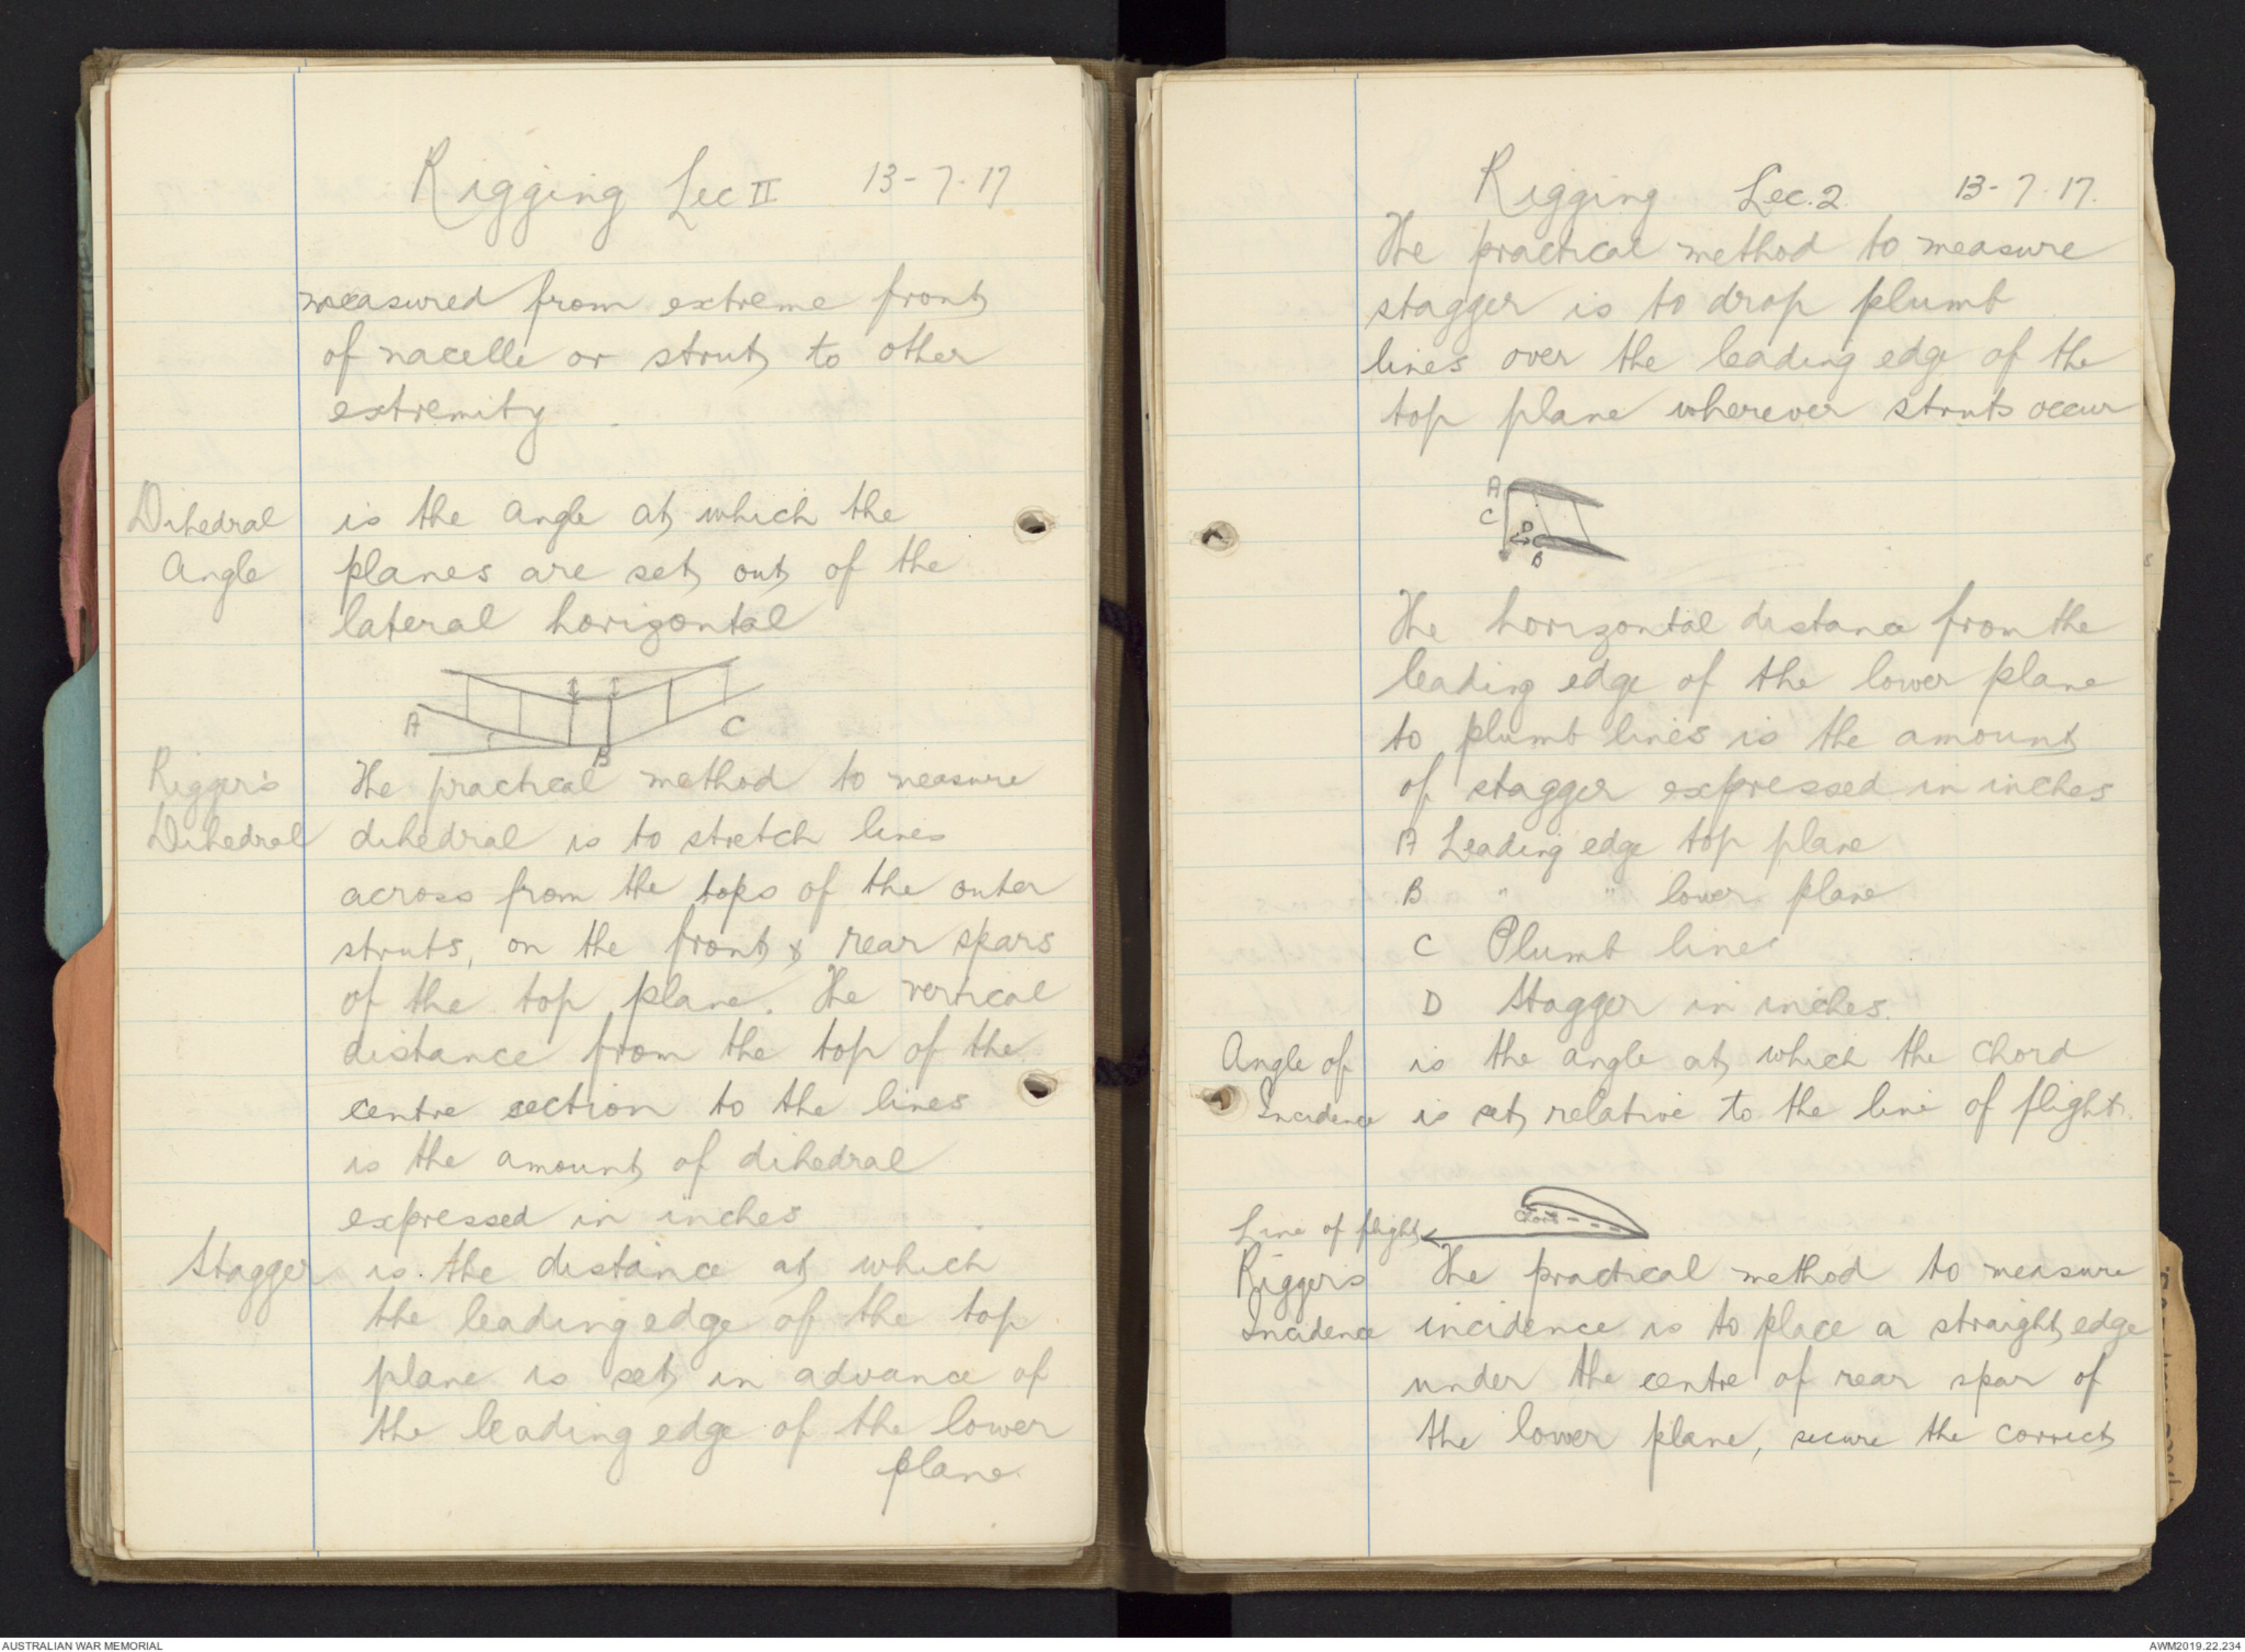 Rigging Lec II 13-7-17
measured from extreme front
of nacelle or strut to other
extremity
Dihedral is the angle at which the
Angle planes are set out of the
lateral horizontal
A B C
Rigger's The practical method to measure
Dihedral dihedral is to stretch lines
across from the tops of the outer
struts, on the front & rear spars
of the top plane. The vertical
distance from the top of the
centre section to the lines
is the amount of dihedral
expressed in inches
Stagger is the distance at which
the leading edge of the top
plane is set in advance of
the leading edge of the lower
plane.
Rigging Lec. 2 13-7-17.
The practical method to measure
stagger is to drop plumb
lines over the leading edge of the
top plane wherever struts occur
A
C
D
B
The horizontal distance from the
leading edge of the lower plane
to plumb lines is the amount
of stagger expressed in inches
A Leading edge top plane
B " " lower plane
C Plumb line
D Stagger in inches.
Angle of is the angle at which the chord
Incidence is set relative to the line of flight.
Chord
Line of flight
Rigger's The practical method to measure
Incidence incidence is to place a straight edge
under the centre of rear spar of
the lower plane, secure the correct
AUSTRALIAN WAR MEMORIAL
AWM2019.22.234